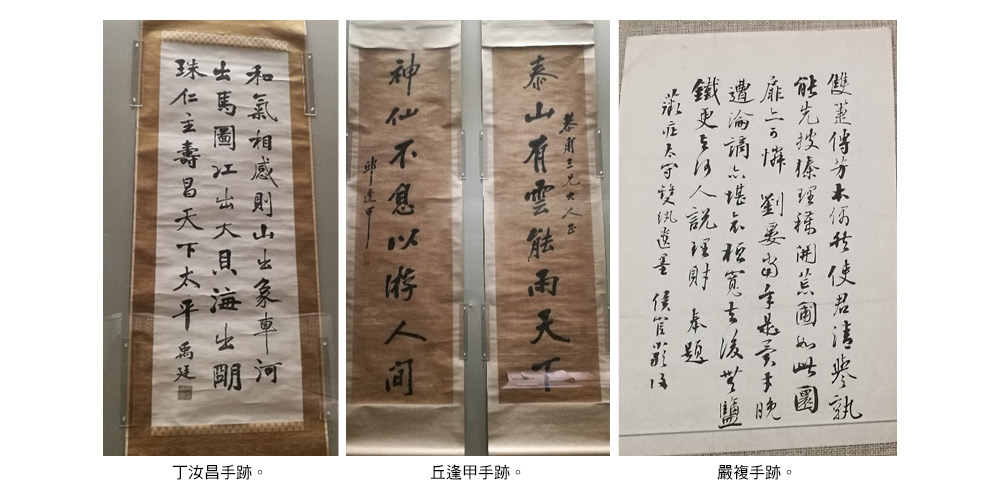 和氣相感則山出象車河
出馬圖江出大貝海出明
珠仁主壽昌天下太平 禹廷
慕甫三兄大人正
泰山有雲能雨天下
神仙不息以游人間
邱逢甲
傳芳木使君清孰
能先披榛理穢開荒圃如此園
扉亦可憐 劉晏當年是才晚
遭淪謫亦堪哀桓寬去後無鹽
鐵更與何人說理財 奉題
太守雙遺墨 侯官嚴復
丁汝昌手跡。
丘逢甲手跡。
嚴複手跡。